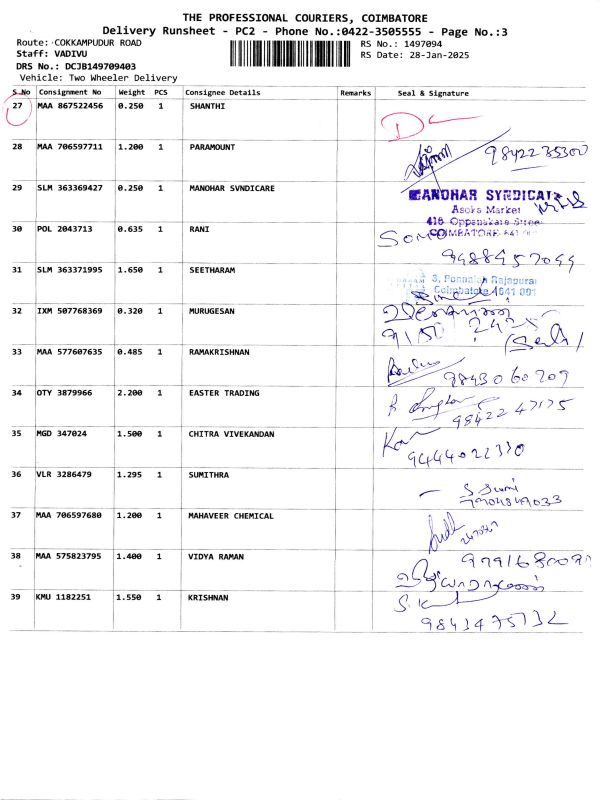 THE PROFESSIONAL COURIERS, COIMBATORE
Delivery Runsheet - PC2 - Phone No.:0422-3505555 - Page No.:3
Route: COKKAMPUDUR ROAD
RS No.: 1497094
Staff: VADIVU
RS Date: 28-Jan-2025
DRS No.: DCJB149709403
Vehicle: Two Wheeler Delivery
S No Consignment No Weight PCS Consignee Details Remarks Seal & Signature
27 MAA 867522456 0.250 1 SHANTHI
28 MAA 706597711 1.200 1 PARAMOUNT 9842235300
29 SLM 363369427 0.250 1 MANOHAR SVNDICARE
MANOHAR SYNDICATE
Asoka Market
416 Oppanakara Street
COIMBATORE-641 001
30 POL 2043713 0.635 1 RANI
9488457044
31 SLM 363371995 1.650 1 SEETHARAM
3, Ponnaiah Rajapuram
Coimbatore 641 001
32 IXM 507768369 0.320 1 MURUGESAN
33 MAA 577607635 0.485 1 RAMAKRISHNAN
9843060709
34 OTY 3879966 2.200 1 EASTER TRADING
9842247175
35 MGD 347024 1.500 1 CHITRA VIVEKANDAN
9444022330
36 VLR 3286479 1.295 1 SUMITHRA
37 MAA 706597680 1.200 1 MAHAVEER CHEMICAL
38 MAA 575823795 1.400 1 VIDYA RAMAN
39 KMU 1182251 1.550 1 KRISHNAN
9843475132